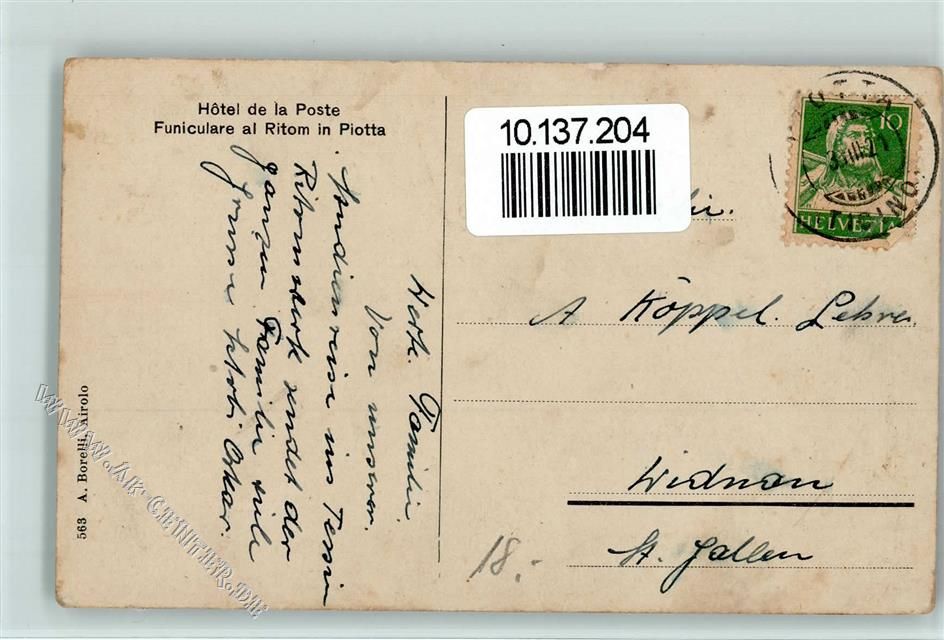 Hôtel de la Poste
Funiculare al Ritom in Piotta
Wert. Familie.
Von unserer
Studienreise ins Tessin
Ritomwerk sendet der
ganzen Familie viele
Grüsse
563 A. Borelli, Airolo
www.ak-center.de
10.137.204
10
HELVETIA
TICINO
A Köppel. Lehrer
Widnau
St. Gallen
18.-